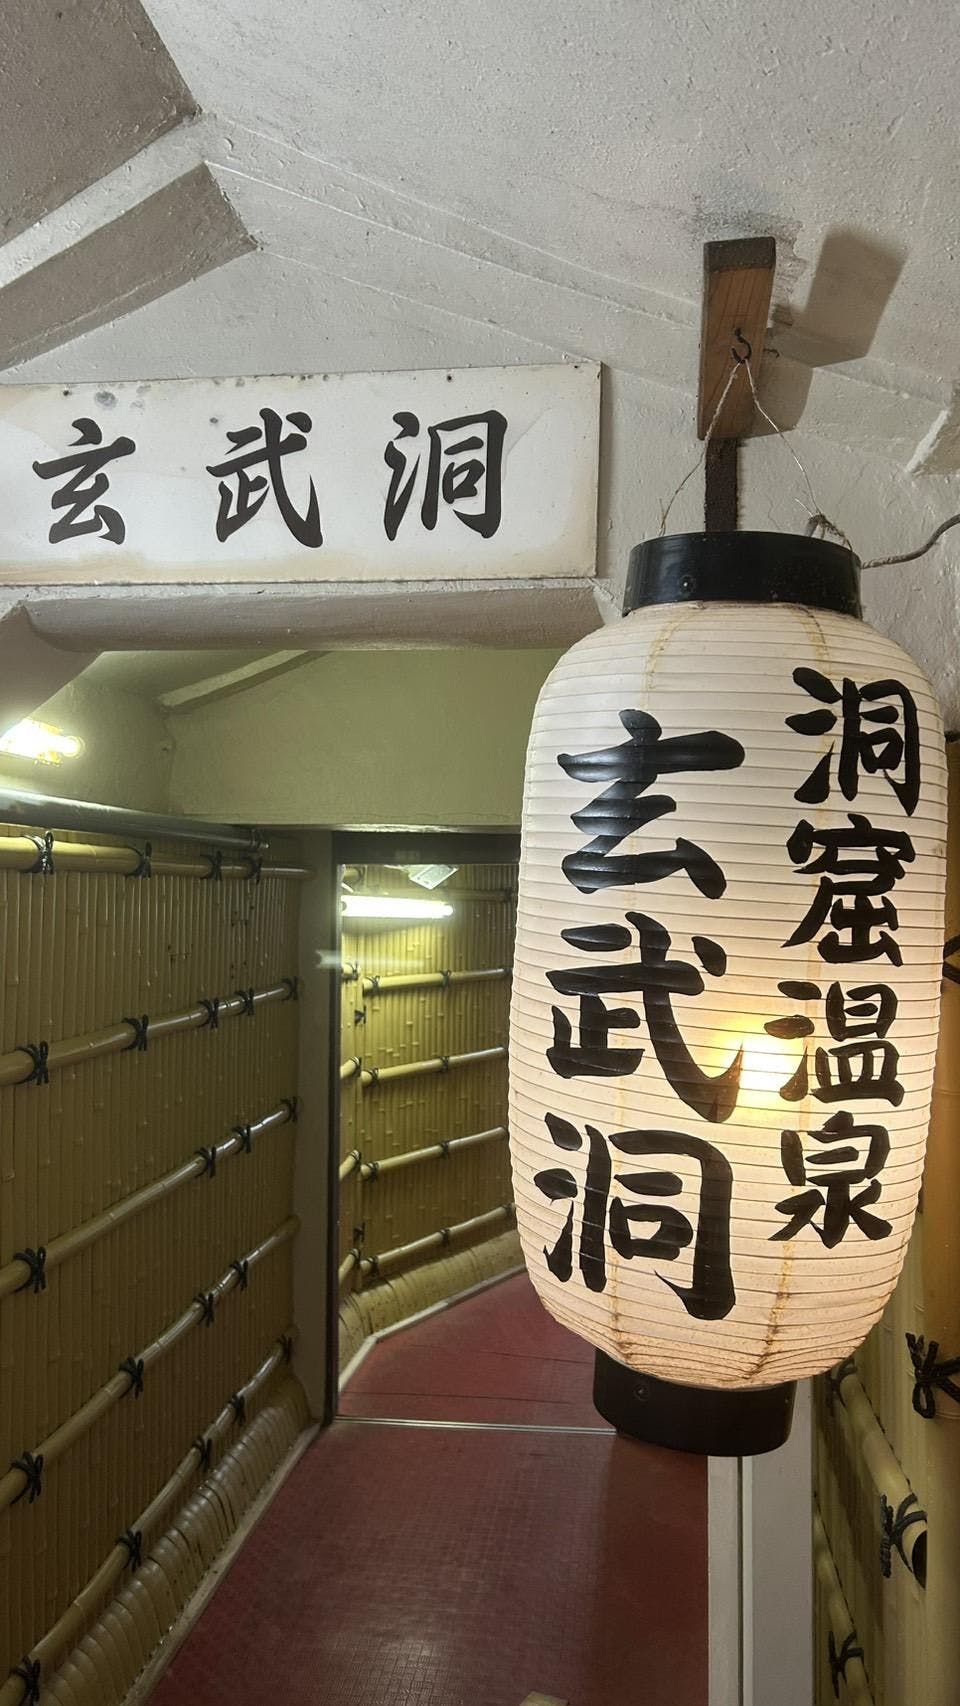 玄武洞
洞窟温泉
玄武洞